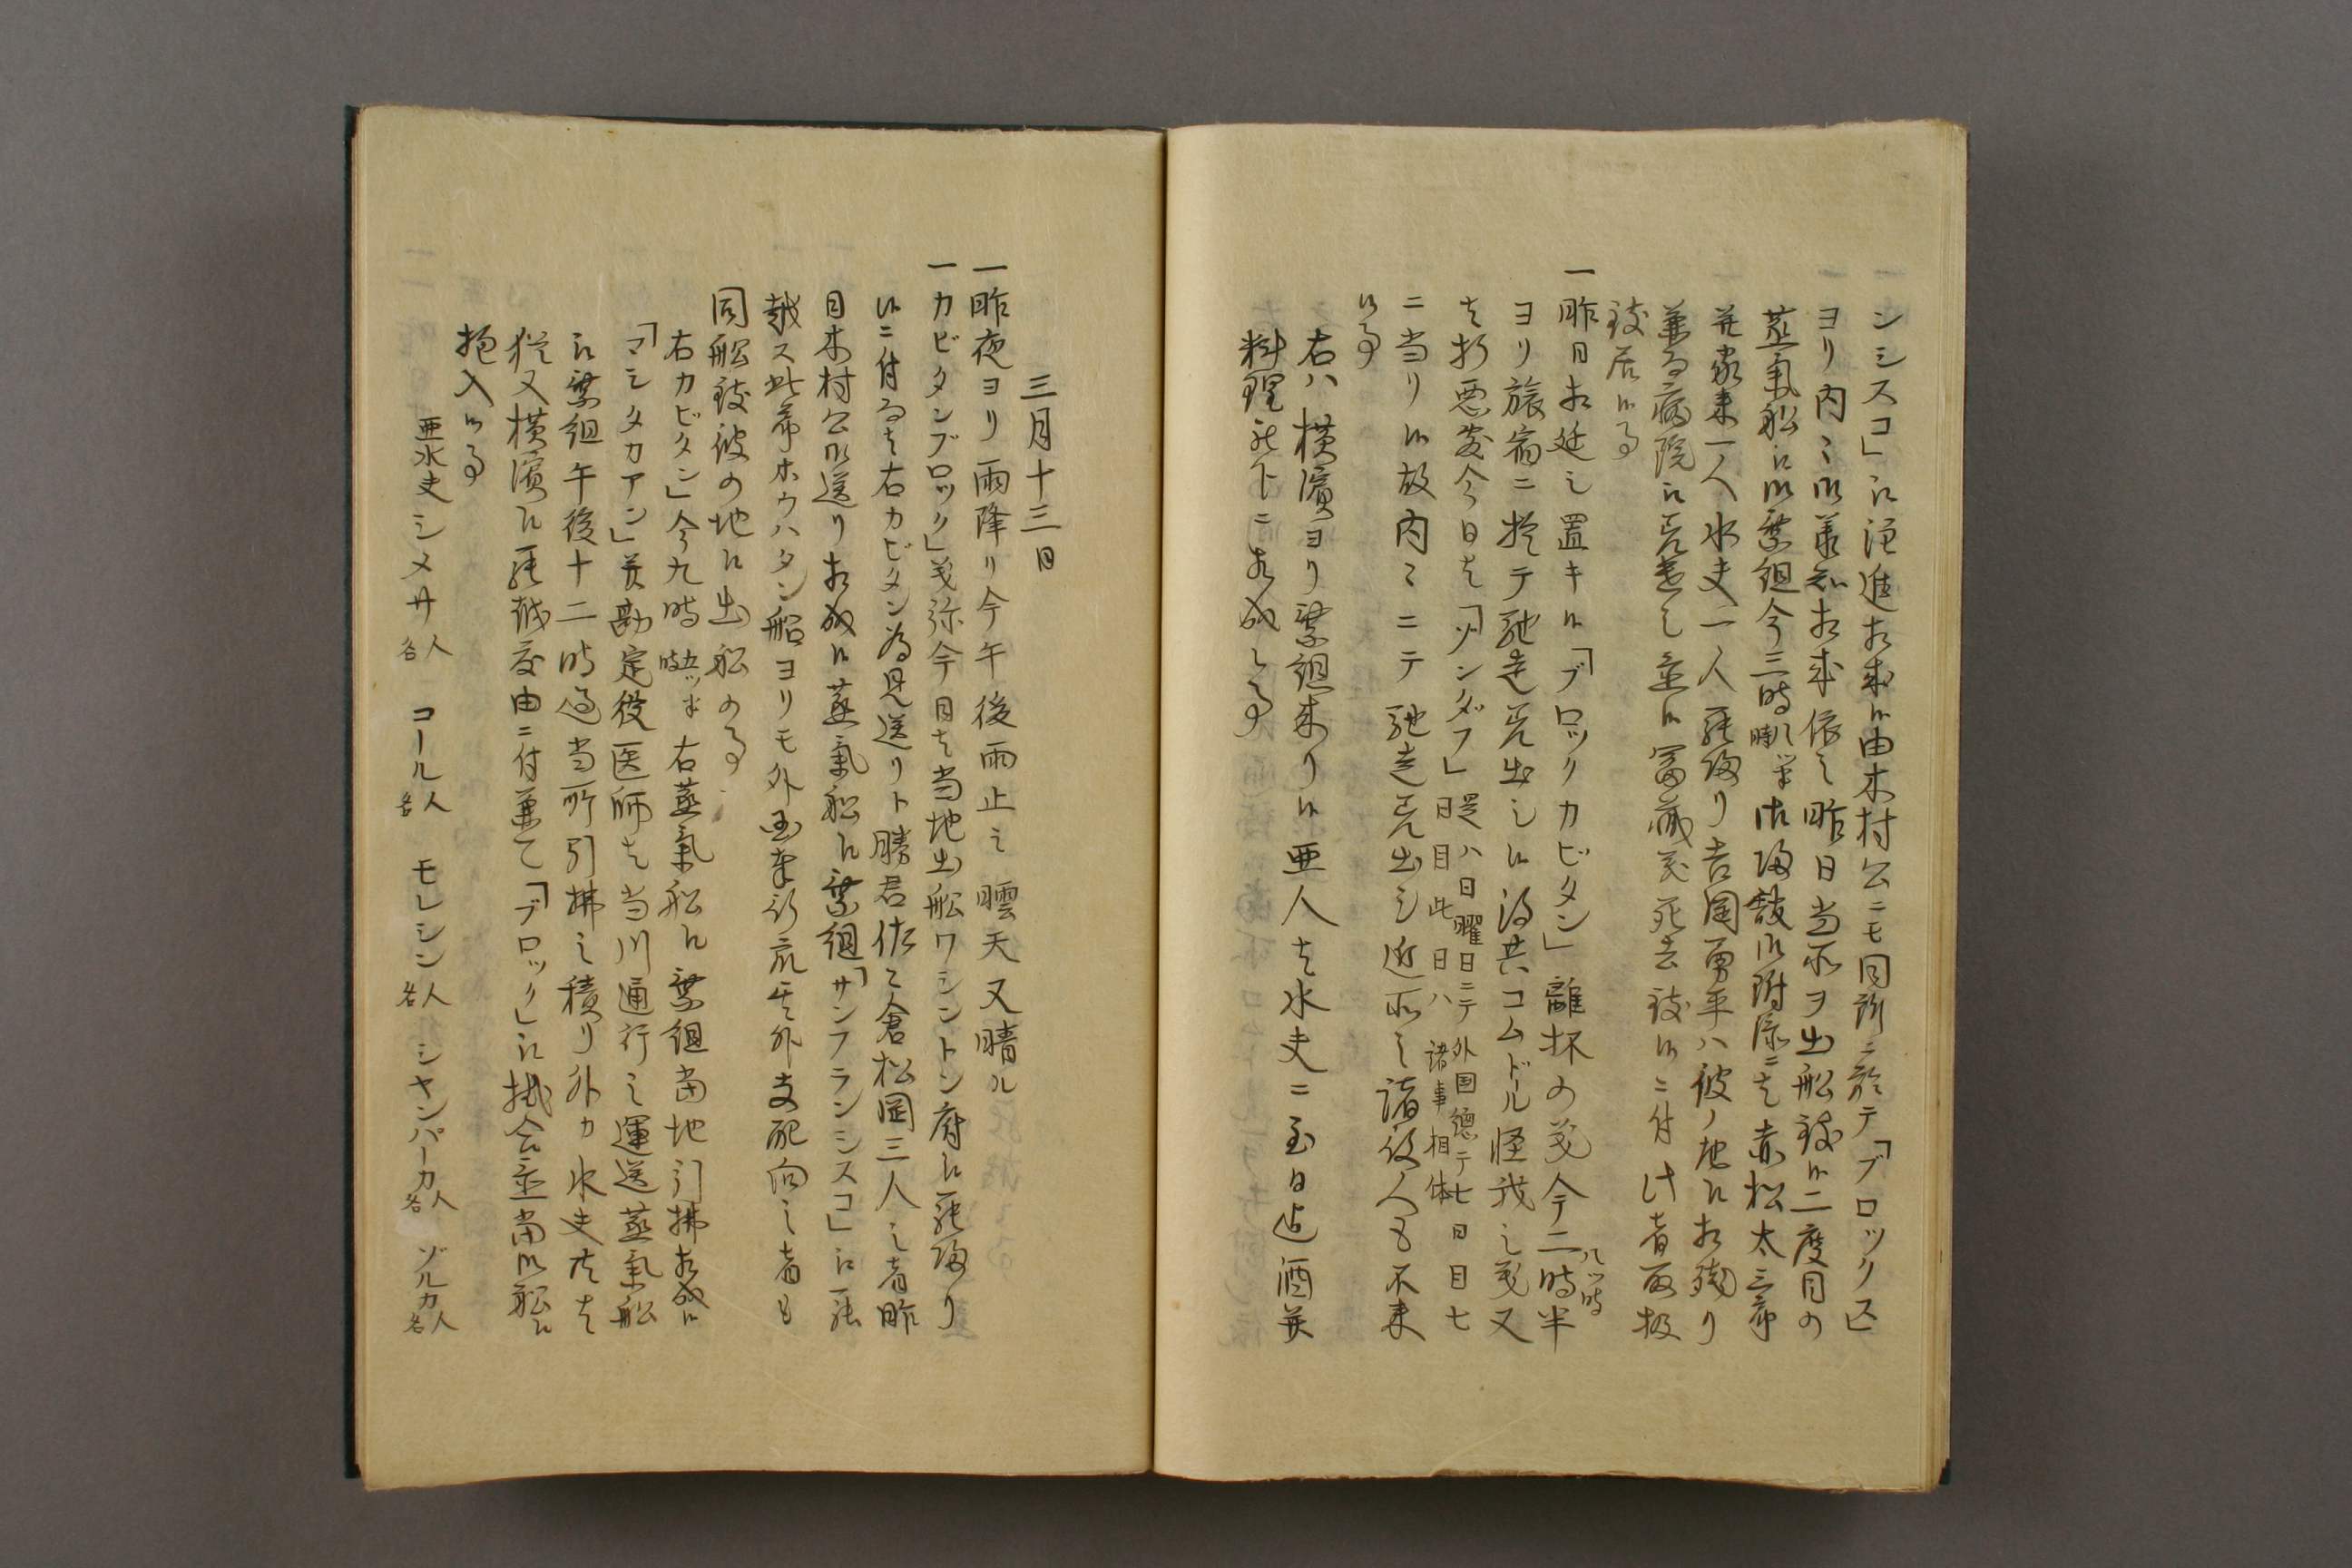 ンシスコ」江注進相成候由木村公ニモ同所ニ於テ「ブロックス」
ヨリ内々御承知相成依之昨日当所ヲ出船致候二度目の
蒸氣船江御乗組今三時御帰艘御附添ニ者赤松太三郎
并家来一人水夫一人罷帰り吉岡勇平ハ彼ノ地江相残り
兼而病院江差置し置候冨蔵義死去致候ニ付此者取扱
致居候事
一昨日相延し置キ候「ブロックカビタン」離杯の義今二時半八ツ時
ヨリ旅宿ニ於テ馳走差出し候得共コムドル怪我之義又
者折悪敷今日者「ソンダフ」是ハ日曜日ニテ外国徳テ七日目七
日目此日ハ諸事相休
ニ当リ候故内々ニテ馳走差出シ近所之諸役人も不来
候事
右ハ横濱ヨリ乗組来り候亜人者水夫ニ至る迠酒并
料理被下ニ相成し事
三月十三日
一昨夜ヨリ雨降リ今午後雨止之曇天又晴ル
一カビタンブロック」義弥今日者当地出船ワシントン府江罷帰り
候ニ付而者右カビタン為見送リト勝君佐々倉松岡三人之者昨
日木村公御送リ相成候蒸氣船江乗組「サンフランシスコ」江罷
越ス此節ホウハタン船ヨリモ外国奉行衆其外支配向之者も
同船致彼の地江出船の事
右カビタン」今九時五ツ半時右蒸氣船江乗組当地引拂相成候
「マシタカアン」并勘定役医師者当川通行之運送蒸氣船
江乗組午後十二時過当所引拂之積リ外カ水夫共者
猶又横濱江罷越度由ニ付兼て「ブロック」江掛合置当御船江
抱入候事
亜水夫シメサ人名 コール人名 モレシン人名 シヤンパーカ人名 ゾルカ人名